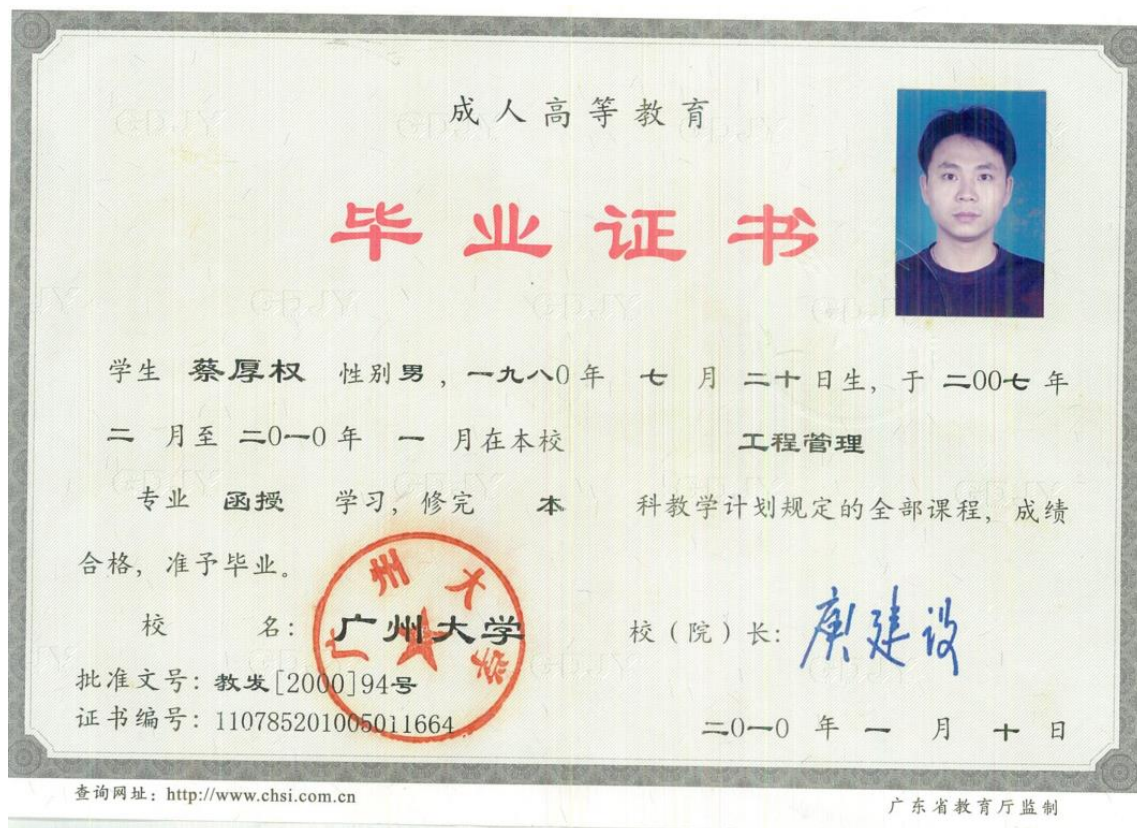 成人高等教育
毕业证书
学生 蔡厚权 性别男，一九八0年 七 月 二十日生，于 二00七 年
二 月至 二0一0年 一 月在本校 工程管理
专业 函授 学习，修完 本 科教学计划规定的全部课程，成绩
合格，准予毕业。
校 名：广州大学
广州大学
校（院）长：庾建设
批准文号：教发[2000]94号
证书编号：110785201005011664
二0一0 年 一 月 十 日
查询网址：http://www.chsi.com.cn
广东省教育厅监制